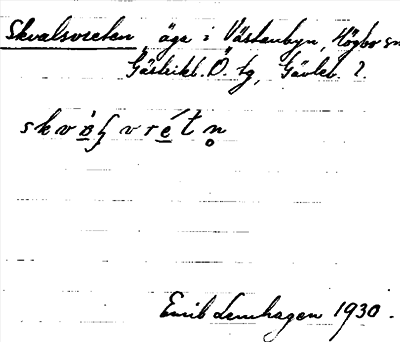 Skvalsvreten, äga i Västanbyn, Högbo sn
Gästrikl. Ö. tg, Gävleb. l.
skvàʂvrétn̥
Emil Lennhagen 1930.